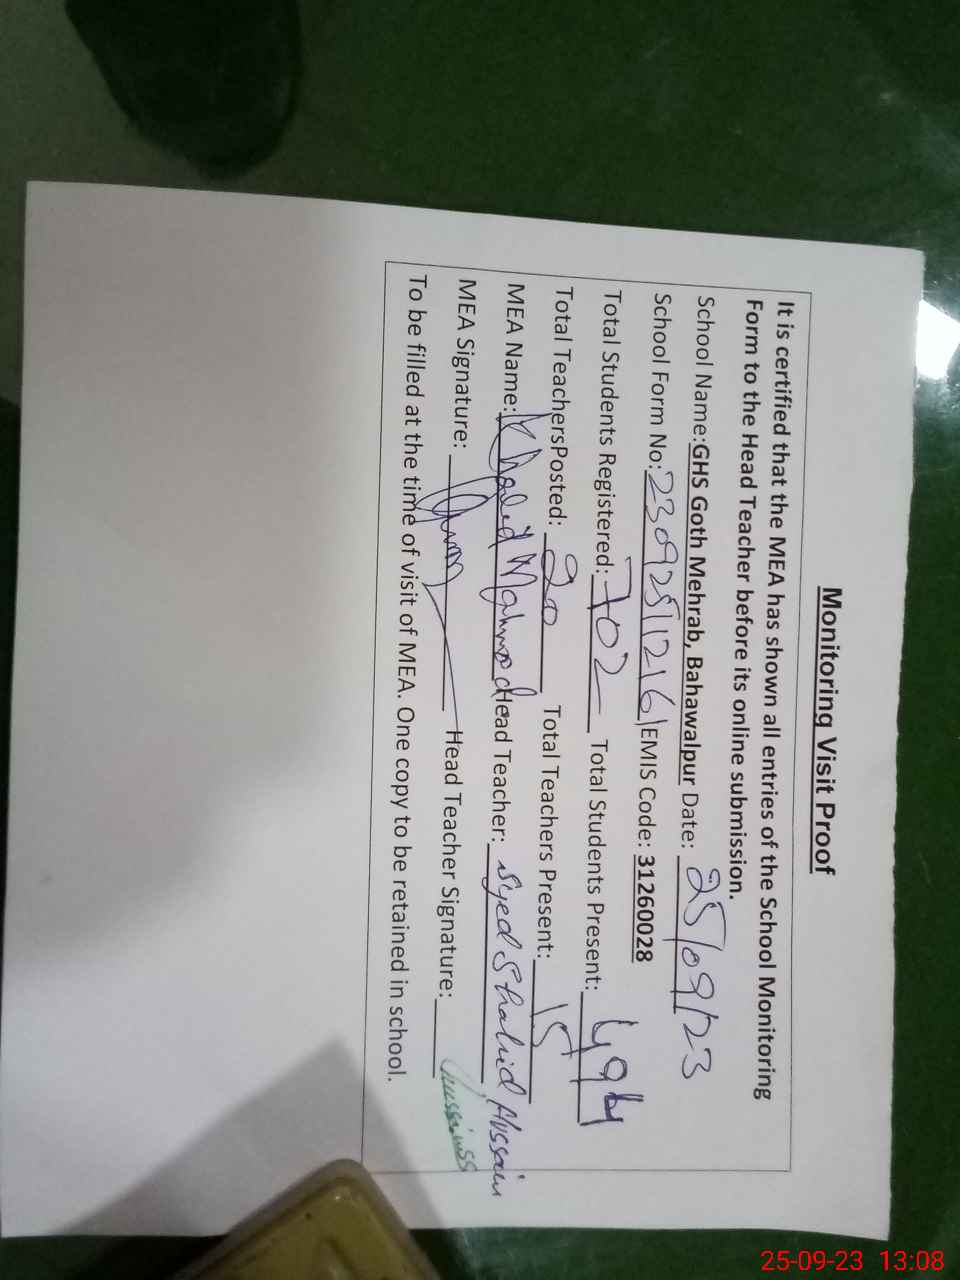 Monitoring Visit Proof
It is certified that the MEA has shown all entries of the School Monitoring
Form to the Head Teacher before its online submission.
School Name:GHS Goth Mehrab, Bahawalpur Date: 25/09/23
School Form No: 2309251216 EMIS Code: 31260028
Total Students Registered: 702 Total Students Present: 494
Total TeachersPosted: 20 Total Teachers Present: 15
MEA Name: Khalid Mahmood Head Teacher: Syed Shahid Hussain
MEA Signature: Head Teacher Signature:
To be filled at the time of visit of MEA. One copy to be retained in school.
25-09-23 13:08